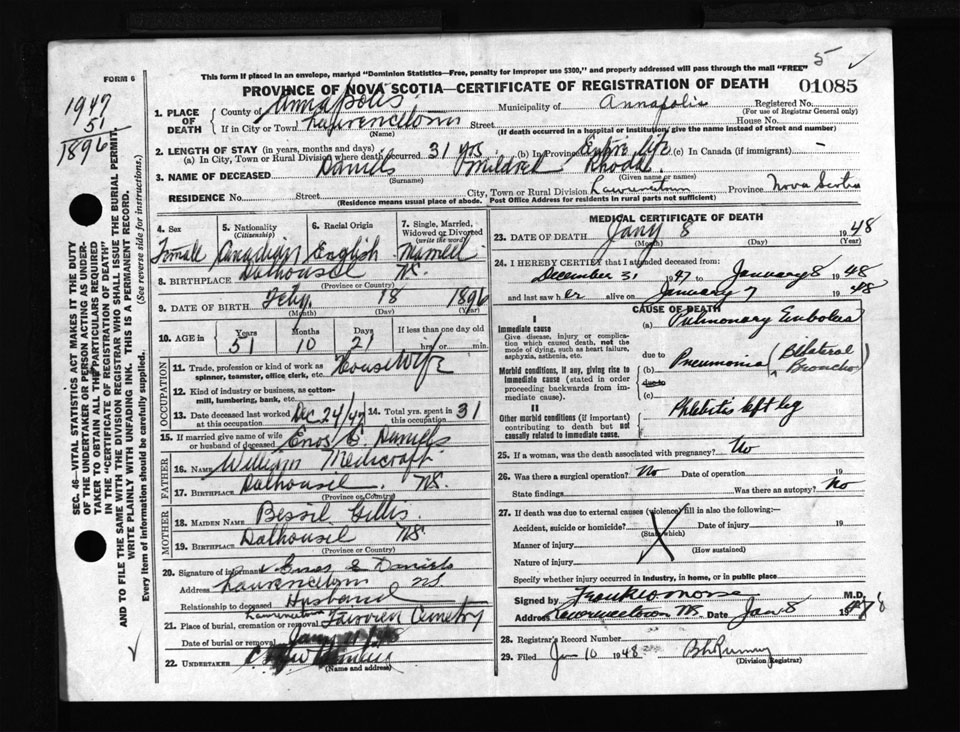 5 ✓
FORM 6
This form if placed in an envelope, marked "Dominion Statistics—Free, penalty for improper use $300," and properly addressed will pass through the mail "FREE"
PROVINCE OF NOVA SCOTIA—CERTIFICATE OF REGISTRATION OF DEATH 01085
1947
51
1896
SEC. 46—VITAL STATISTICS ACT MAKES IT THE DUTY
OF THE UNDERTAKER OR PERSON ACTING AS UNDER-
TAKER TO OBTAIN ALL THE PARTICULARS REQUIRED
IN THE "CERTIFICATE OF REGISTRATION OF DEATH"
AND TO FILE THE SAME WITH THE DIVISION REGISTRAR WHO SHALL ISSUE THE BURIAL PERMIT.
WRITE PLAINLY WITH UNFADING INK. THIS IS A PERMANENT RECORD.
Every item of information should be carefully supplied. (See reverse side for instructions.)
1. PLACE OF DEATH County of Annapolis Municipality of Annapolis Registered No.
(For use of Registrar General only)
If in City or Town Lawrencetown Street House No.
(Name) (If death occurred in a hospital or institution, give the name instead of street and number)
2. LENGTH OF STAY (in years, months and days)
(a) In City, Town or Rural Division where death occurred 31 yrs. (b) In Province Entire life (c) In Canada (if immigrant) —
3. NAME OF DECEASED Daniels Mildred Rhoda
(Surname) (Given name or names)
RESIDENCE No. Street City, Town or Rural Division Lawrencetown Province Nova Scotia
(Residence means usual place of abode. Post Office Address for residents in rural parts not sufficient)
4. Sex 5. Nationality (Citizenship) 6. Racial Origin 7. Single, Married, Widowed or Divorced (write the word)
Female Canadian English Married
8. BIRTHPLACE Dalhousie NS.
(Province or Country)
9. DATE OF BIRTH Feby. 18 1896
(Month) (Day) (Year)
10. AGE in Years Months Days If less than one day old
51 10 21 hrs. or min.
OCCUPATION
11. Trade, profession or kind of work as spinner, teamster, office clerk, etc. Housewife
12. Kind of industry or business, as cotton-mill, lumbering, bank, etc.
13. Date deceased last worked at this occupation Dec 24/47 14. Total yrs. spent in this occupation 31
15. If married give name of wife or husband of deceased Enos E. Daniels
FATHER
16. NAME William Medicraft
17. BIRTHPLACE Dalhousie NS.
(Province or Country)
MOTHER
18. MAIDEN NAME Bessie Gillis
19. BIRTHPLACE Dalhousie NS
(Province or Country)
20. Signature of informant Enos E Daniels
Address Lawrencetown NS.
Relationship to deceased Husband
21. Place of burial, cremation or removal Lawrencetown Fairview Cemetery
Date of burial or removal
22. UNDERTAKER
(Name and address)
MEDICAL CERTIFICATE OF DEATH
23. DATE OF DEATH Jany 8 1948
(Month) (Day) (Year)
24. I HEREBY CERTIFY that I attended deceased from:
December 31 1947 to January 8 1948
and last saw her alive on January 7 1948
CAUSE OF DEATH
I
Immediate cause (a) Pulmonary Embolus
Give disease, injury or complication which caused death, not the mode of dying, such as heart failure, asphyxia, asthenia, etc.
due to
Morbid conditions, if any, giving rise to immediate cause (stated in order proceeding backwards from immediate cause). (b) Pneumonia (Bilateral Broncho)
due to
(c)
II
Other morbid conditions (if important) contributing to death but not causally related to immediate cause. Phlebitis left leg
25. If a woman, was the death associated with pregnancy? No
26. Was there a surgical operation? No Date of operation 19
State findings Was there an autopsy? No
27. If death was due to external causes (violence) fill in also the following:—
Accident, suicide or homicide? Date of injury 19
(State which)
Manner of injury
(How sustained)
Nature of injury
Specify whether injury occurred in industry, in home, or in public place
Signed by Frank W Morse M.D.
Address Lawrencetown NS. Date Jan 8 1948
28. Registrar's Record Number
29. Filed Jan 10 1948
(Division Registrar)